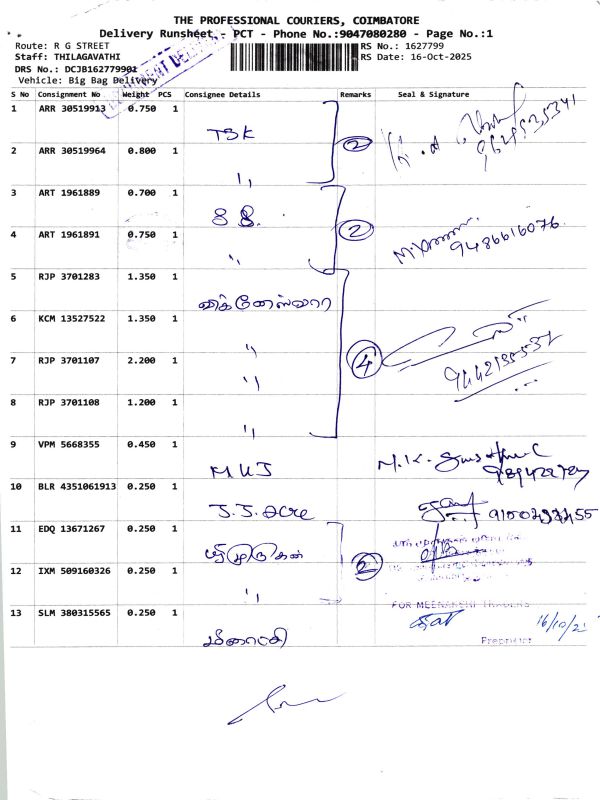 THE PROFESSIONAL COURIERS, COIMBATORE
Delivery Runsheet - PCT - Phone No.:9047080280 - Page No.:1
Route: R G STREET
RS No.: 1627799
Staff: THILAGAVATHI
RS Date: 16-Oct-2025
DRS No.: DCJB162779901
Vehicle: Big Bag Delivery
S No Consignment No Weight PCS Consignee Details Remarks Seal & Signature
1 ARR 30519913 0.750 1
TSK
2
2 ARR 30519964 0.800 1
〃
3 ART 1961889 0.700 1
2
9486616076
4 ART 1961891 0.750 1
〃
5 RJP 3701283 1.350 1
விக்னேஸ்வரா
6 KCM 13527522 1.350 1
〃
4
7 RJP 3701107 2.200 1
〃
8 RJP 3701108 1.200 1
〃
9 VPM 5668355 0.450 1
M.K.
10 BLR 4351061913 0.250 1
11 EDQ 13671267 0.250 1
ஸ்ரீமுருகன்
2
12 IXM 509160326 0.250 1
〃
FOR MEENAKSHI TRADERS
13 SLM 380315565 0.250 1
மீனாட்சி
Proprietor